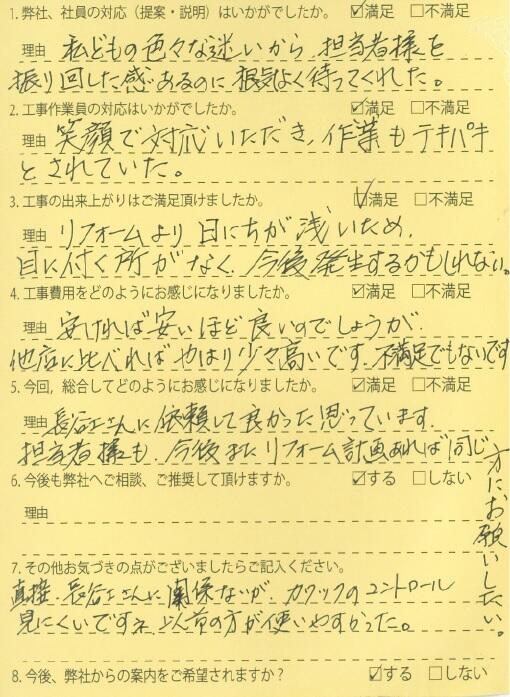 1. 弊社、社員の対応（提案・説明）はいかがでしたか。 ☑満足 □不満足
理由 私どもの色々な迷いから、担当者様を
振り回した感あるのに根気よく待ってくれた。
2. 工事作業員の対応はいかがでしたか。 ☑満足 □不満足
理由 笑顔で対応いただき、作業もテキパキ
とされていた。
3. 工事の出来上がりはご満足頂けましたか。 ☑満足 □不満足
理由 リフォームより日にちが浅いため、
目に付く所がなく、今後発生するかもしれない。
4. 工事費用をどのようにお感じになりましたか。 ☑満足 □不満足
理由 安ければ安いほど良いのでしょうが、
他店に比べればやはり少々高いです、不満足でもないです
5. 今回，総合してどのようにお感じになりましたか。 ☑満足 □不満足
理由 長谷工さんに依頼して良かった思っています。
担当者様も、今後またリフォーム計画あれば同じ
方にお願いしたい。
6. 今後も弊社へご相談、ご推奨して頂けますか。 ☑する □しない
理由
7. その他お気づきの点がございましたらご記入ください。
直接、長谷工さんに関係ないが、カワックのコントロール
見にくいですネ 以前の方が使いやすかった。
8. 今後、弊社からの案内をご希望されますか？ ☑する □しない